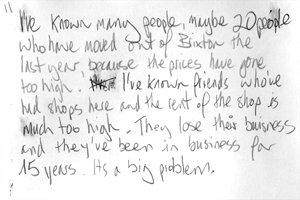 I've known many people, maybe 20 people
who have moved out of Brixton the
last year, because the prices have gone
too high. I've known friends who've
had shops here and the rent of the shop is
much too high. They lose their business
and they've been in business for
15 years. Its a big problem.